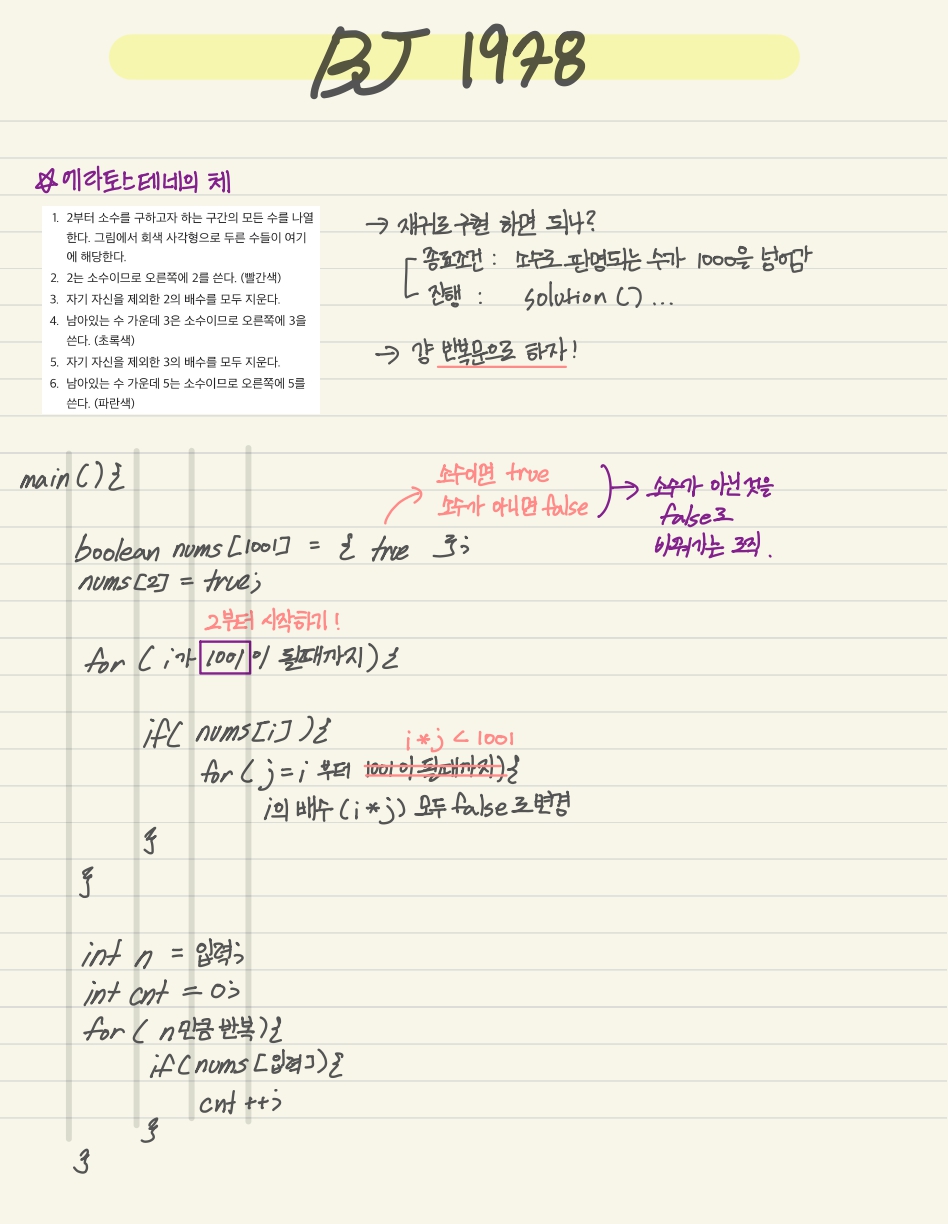 BJ 1978
☆ 에라토스테네의 체
1. 2부터 소수를 구하고자 하는 구간의 모든 수를 나열
한다. 그림에서 회색 사각형으로 두른 수들이 여기
에 해당한다.
2. 2는 소수이므로 오른쪽에 2를 쓴다. (빨간색)
3. 자기 자신을 제외한 2의 배수를 모두 지운다.
4. 남아있는 수 가운데 3은 소수이므로 오른쪽에 3을
쓴다. (초록색)
5. 자기 자신을 제외한 3의 배수를 모두 지운다.
6. 남아있는 수 가운데 5는 소수이므로 오른쪽에 5를
쓴다. (파란색)
→ 재귀로 구현 하면 되나?
종료조건 : 소수로 판명되는 수가 1000을 넘어감
진행 : solution () ...
→ 걍 반복문으로 하자!
main() {
소수이면 true
소수가 아니면 false
→ 소수가 아닌것을
false로
바꿔가는 로직.
boolean nums[1001] = { true };
nums[2] = true;
2부터 시작하기!
for ( i가 1001이 될때까지) {
if( nums[i] ) {
i*j < 1001
for ( j = i 부터 1001이 될때까지) {
i의 배수 (i*j) 모두 false로 변경
}
}
int n = 입력;
int cnt = 0;
for ( n만큼 반복) {
if (nums [입력]) {
cnt ++;
}
}